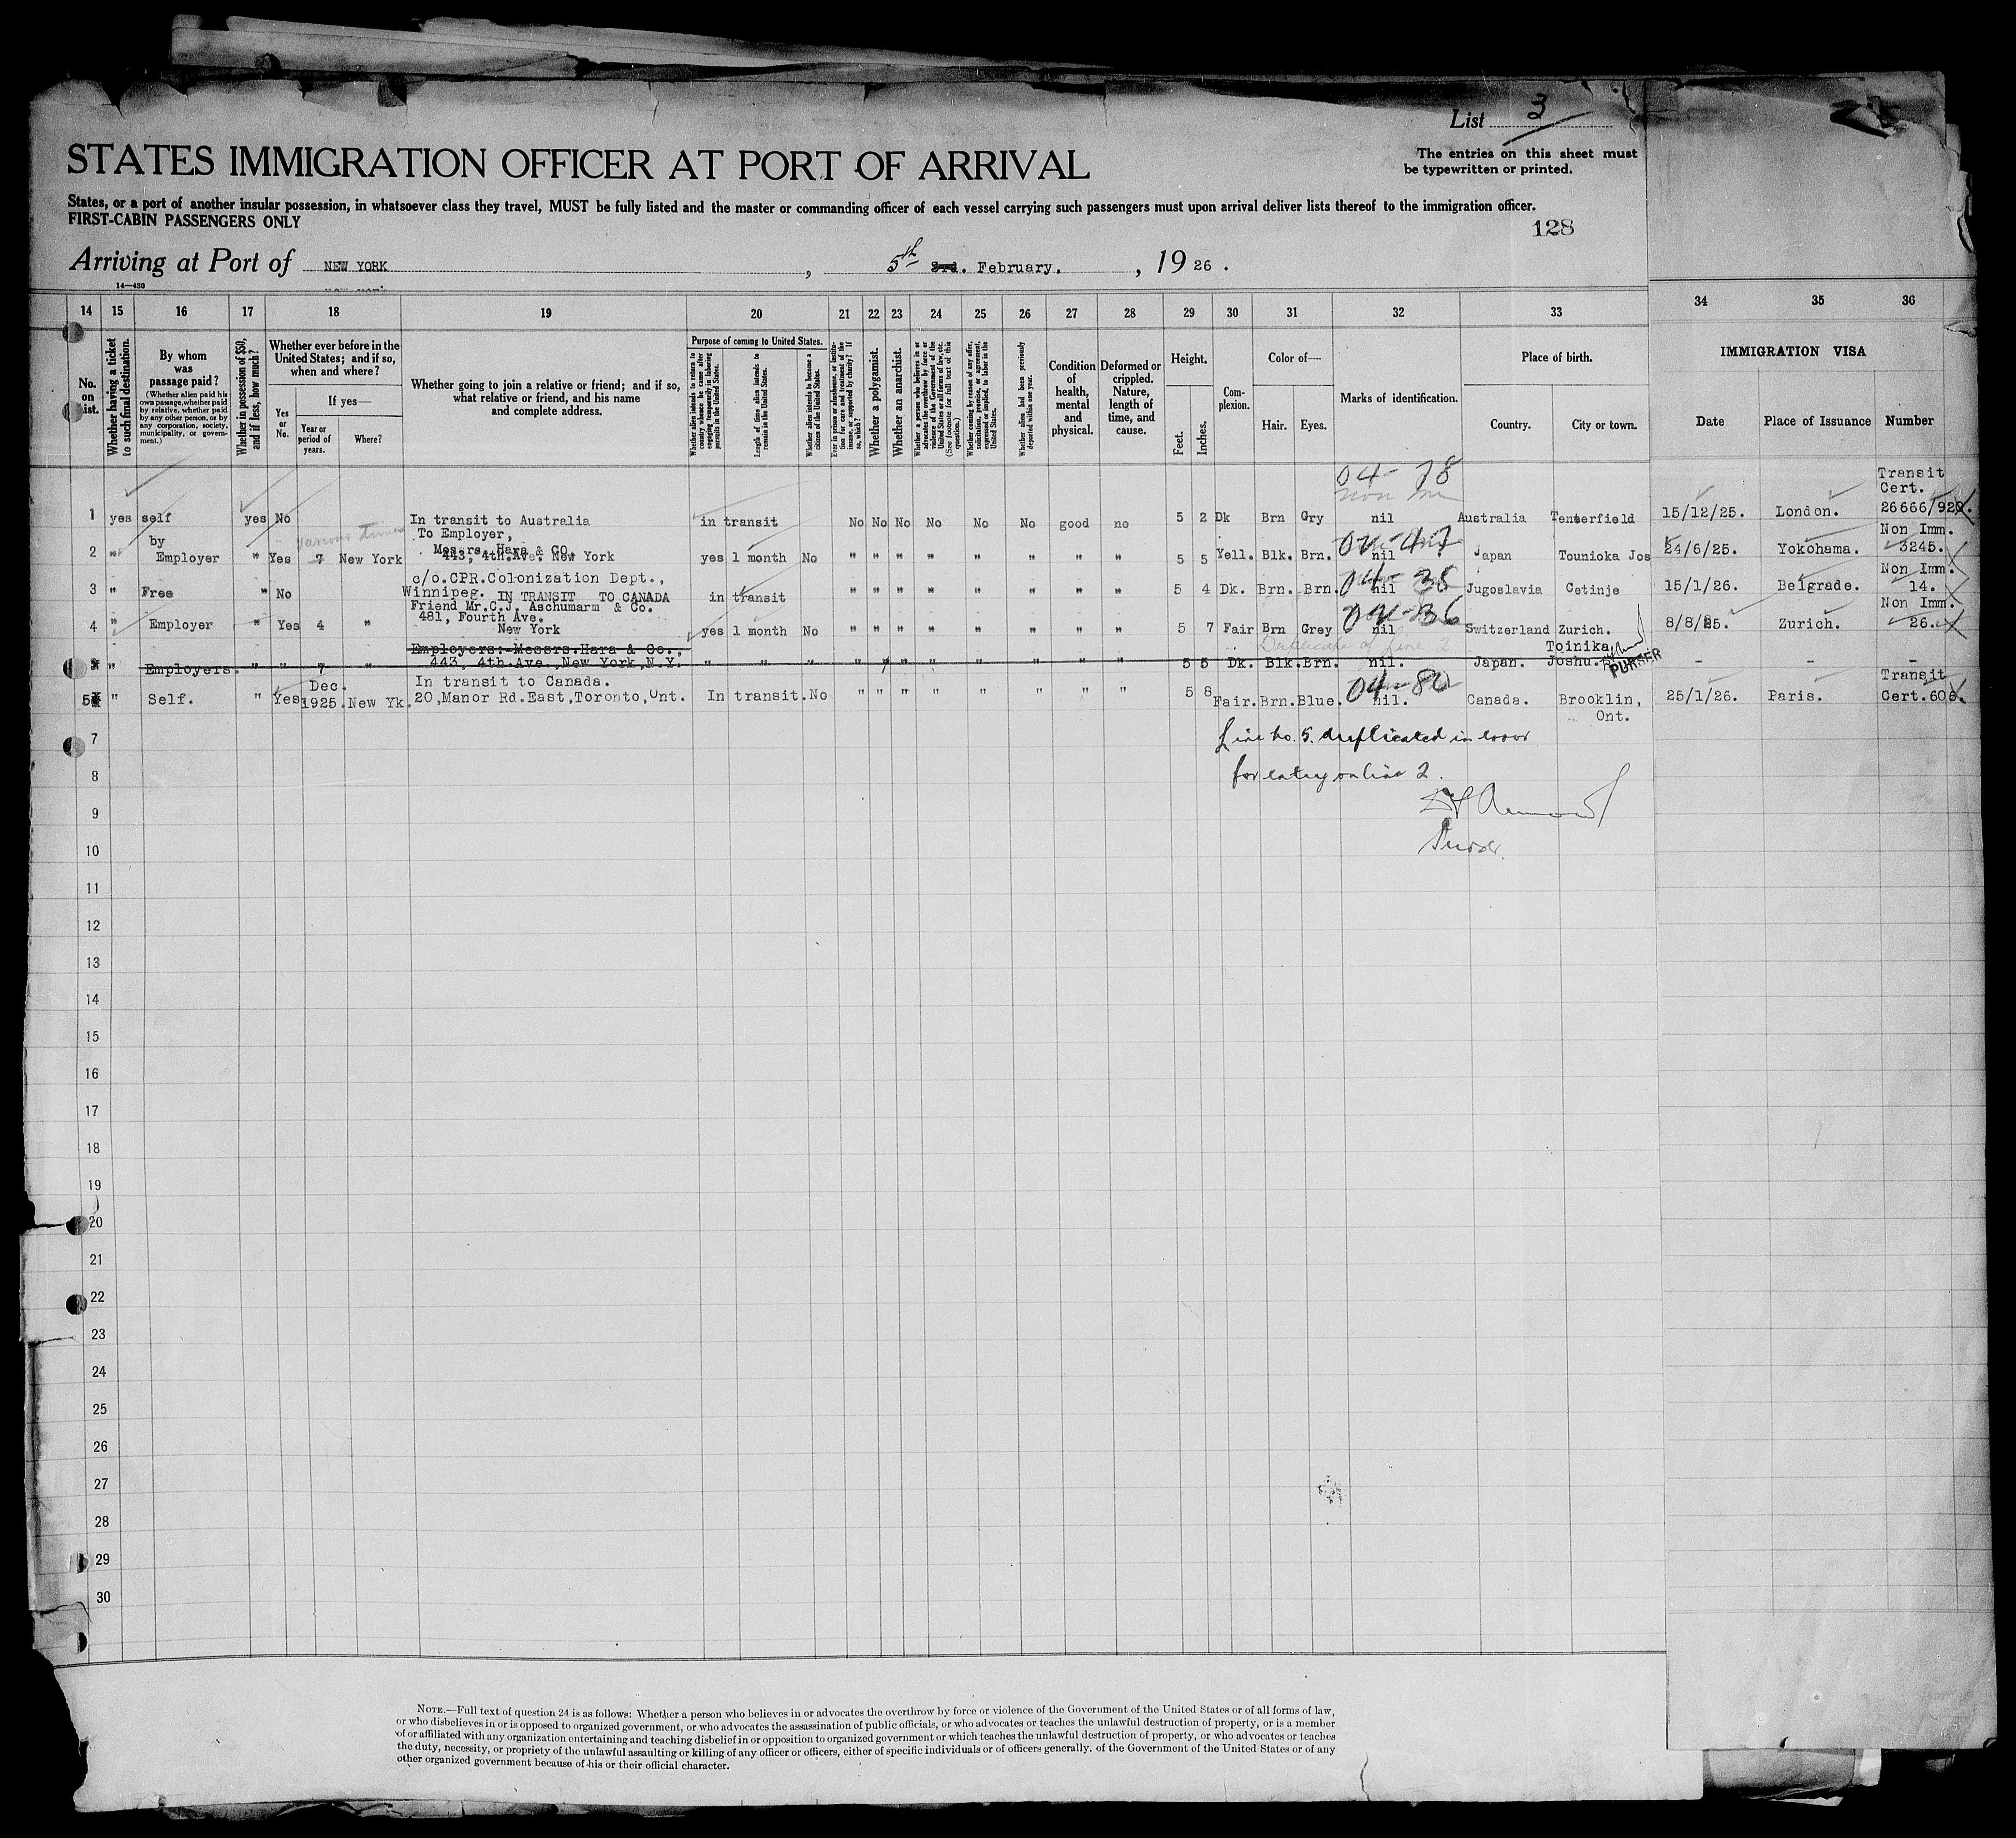 List 3
STATES IMMIGRATION OFFICER AT PORT OF ARRIVAL
The entries on this sheet must
be typewritten or printed.
States, or a port of another insular possession, in whatsoever class they travel, MUST be fully listed and the master or commanding officer of each vessel carrying such passengers must upon arrival deliver lists thereof to the immigration officer.
FIRST-CABIN PASSENGERS ONLY
128
Arriving at Port of NEW YORK, 5th 3rd. February, 1926.
14—430
14 15 16 17 18 19 20 21 22 23 24 25 26 27 28 29 30 31 32 33 34 35 36
No. on list.
Whether having a ticket to such final destination.
By whom was passage paid?
(Whether alien paid his own passage, whether paid by relative, whether paid by any other person, or by any corporation, society, municipality, or government.)
Whether in possession of $50, and if less, how much?
Whether ever before in the United States; and if so, when and where?
Yes or No.
If yes—
Year or period of years.
Where?
Whether going to join a relative or friend; and if so, what relative or friend, and his name and complete address.
Purpose of coming to United States.
Whether alien intends to return to country whence he came after engaging temporarily in laboring pursuits in the United States.
Length of time alien intends to remain in the United States.
Whether alien intends to become a citizen of the United States.
Ever in prison or almshouse, or institution for care and treatment of the insane, or supported by charity? If so, which?
Whether a polygamist.
Whether an anarchist.
Whether a person who believes in or advocates the overthrow by force or violence of the Government of the United States or all forms of law, etc. (See footnote for full text of this question.)
Whether coming by reason of any offer, solicitation, promise, or agreement, expressed or implied, to labor in the United States.
Whether alien had been previously deported within one year.
Condition of health, mental and physical.
Deformed or crippled. Nature, length of time, and cause.
Height.
Feet.
Inches.
Complexion.
Color of—
Hair.
Eyes.
Marks of identification.
Place of birth.
Country.
City or town.
IMMIGRATION VISA
Date
Place of Issuance
Number
04-78
Transit
Cert.
1 yes self yes No In transit to Australia in transit No No No No No No good no 5 2 Dk Brn Gry nil Australia Tenterfield 15/12/25. London. 26666/929.
by To Employer, Non Imm.
various times Messrs. Hara & CO. 04-47
2 " Employer " Yes 7 New York 443, 4th.Ave. New York yes 1 month No " " " " " " " " 5 5 Yell. Blk. Brn. nil Japan Tounioka Jos 24/6/25. Yokohama. 3245.
c/o.CPR.Colonization Dept., 04-35 Non Imm.
3 " Free " No Winnipeg. IN TRANSIT TO CANADA in transit " " " " " " " " 5 4 Dk. Brn. Brn. nil Jugoslavia Cetinje 15/1/26. Belgrade. 14.
Friend Mr.C.J. Aschumarm & Co. 04-36 Non Imm.
4 " Employer " Yes 4 " 481, Fourth Ave. yes 1 month No " " " " " " " " 5 7 Fair Brn Grey nil Switzerland Zurich. 8/8/25. Zurich. 26.
New York
Duplicate of line 2
Employers:-Messrs.Hara & Co., Toinika
" Employers. " " 7 " 443, 4th.Ave.,New York,N.Y. " " " " " " " " " " " 5 5 Dk. Blk. Brn. nil. Japan. Joshu. PURSER - - -
Dec. In transit to Canada. 04-80 Transit
5 " Self. " Yes 1925. New Yk. 20,Manor Rd.East,Toronto,Ont. In transit. No " " " " " " " " 5 8 Fair. Brn. Blue. nil. Canada. Brooklin, 25/1/26. Paris. Cert.606.
Ont.
Line No. 5. duplicated in error
for entry on line 2.
Purser.
7
8
9
10
11
12
13
14
15
16
17
18
19
20
21
22
23
24
25
26
27
28
29
30
NOTE.—Full text of question 24 is as follows: Whether a person who believes in or advocates the overthrow by force or violence of the Government of the United States or of all forms of law,
or who disbelieves in or is opposed to organized government, or who advocates the assassination of public officials, or who advocates or teaches the unlawful destruction of property, or is a member
of or affiliated with any organization entertaining and teaching disbelief in or opposition to organized government or which teaches the unlawful destruction of property, or who advocates or teaches
the duty, necessity, or propriety of the unlawful assaulting or killing of any officer or officers, either of specific individuals or of officers generally. of the Government of the United States or of any
other organized government because of his or their official character.